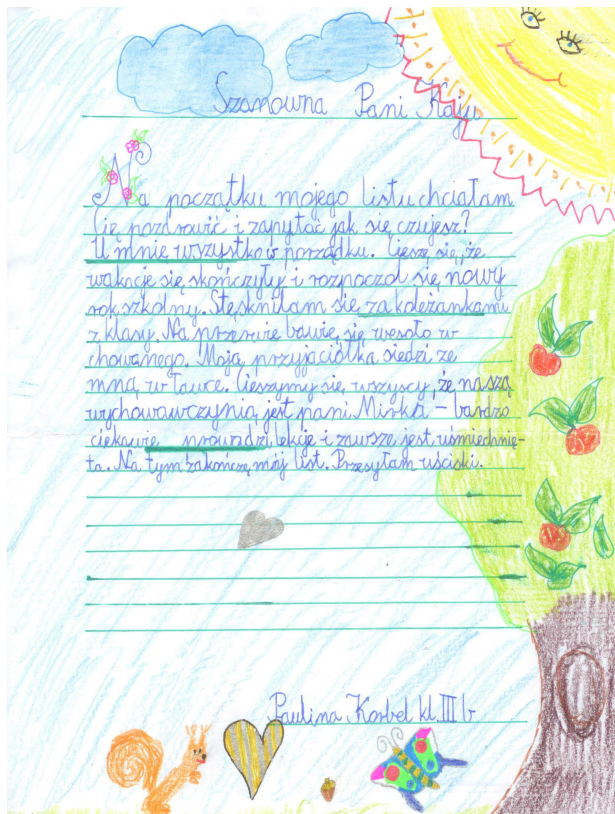 Szanowna Pani Kaju
Na początku mojego listu chciałam
Cię pozdrowić i zapytać jak się czujesz?
U mnie wszystko w porządku. Cieszę się, że
wakacje się skończyły i rozpoczoł się nowy
rok szkolny. Stęskniłam się za koleżankami
z klasy. Na przerwie bawię się wesoło w
chowanego. Moja przyjaciółka siedzi ze
mną w ławce. Cieszymy się wszyscy, że naszą
wychowawczynią jest pani Mirka – bardzo
ciekawie prowadzi lekcje i zawsze jest uśmiechnię-
ta. Na tym zakończę mój list. Przesyłam uściski.
Paulina Korbel kl. III b